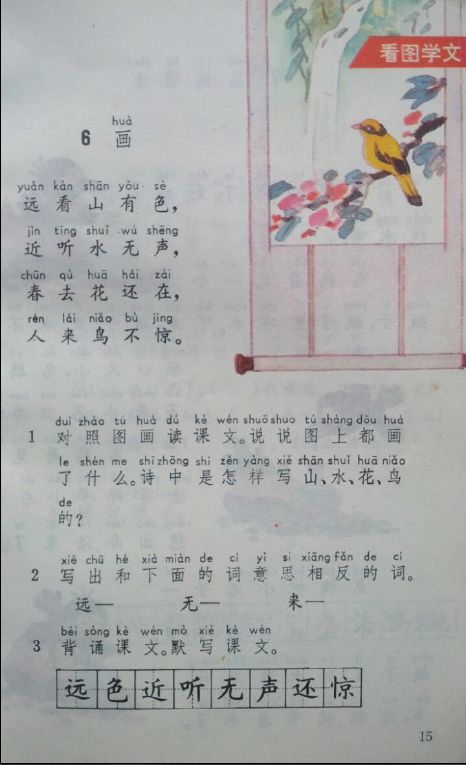 看图学文
huà
6 画
yuǎn kàn shān yǒu sè
远看山有色，
jìn tīng shuǐ wú shēng
近听水无声，
chūn qù huā hái zài
春去花还在，
rén lái niǎo bù jīng
人来鸟不惊。
duì zhào tú huà dú kè wén shuō shuo tú shàng dōu huà
1 对照图画读课文。说说图上都画
le shén me shī zhōng shì zěn yàng xiě shān shuǐ huā niǎo
了什么。诗中是怎样写山、水、花、鸟
de
的？
xiě chū hé xià miàn de cí yì si xiāng fǎn de cí
2 写出和下面的词意思相反的词。
远— 无— 来—
bèi sòng kè wén mò xiě kè wén
3 背诵课文。默写课文。
远色近听无声还惊
15